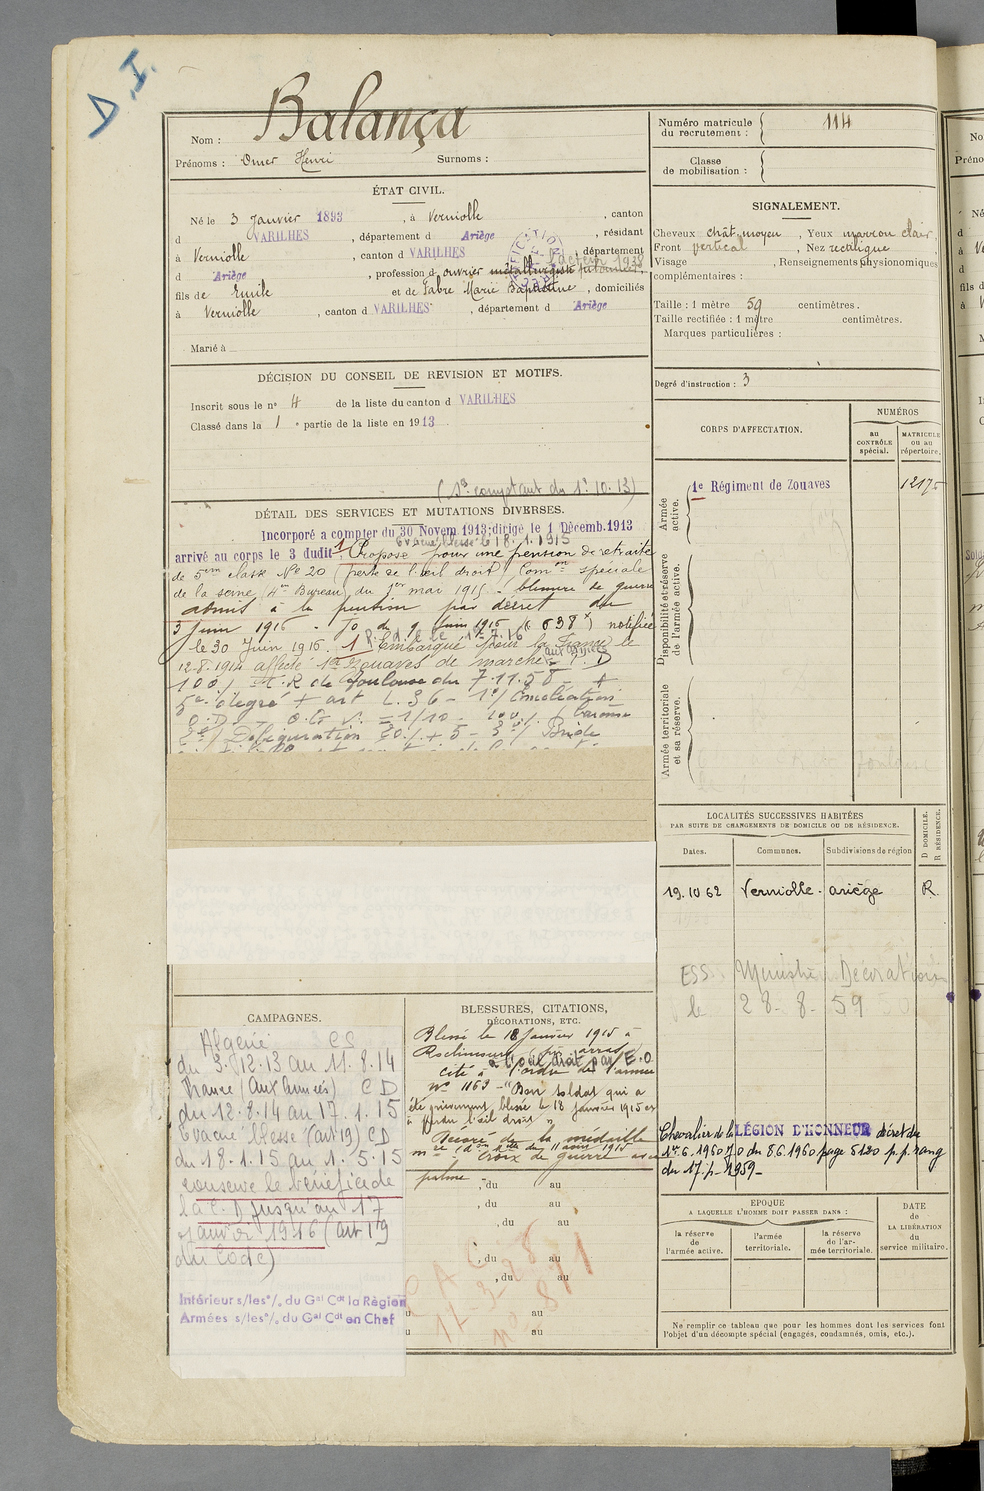 D.I.
Balança
Nom :
Prénoms : Omer Henri Surnoms :
ÉTAT CIVIL.
Né le 3 Janvier 1893, à Verniolle, canton
d VARILHES, département d Ariège, résidant
à Verniolle, canton d VARILHES, département
d Ariège, profession d ouvrier métallurgiste
fils de Emile et de Fabre Marie Baptistine, domiciliés
à Verniolle, canton d VARILHES, département d Ariège
Marié à
DÉCISION DU CONSEIL DE REVISION ET MOTIFS.
Inscrit sous le nº 4 de la liste du canton d VARILHES
Classé dans la 1 e partie de la liste en 1913.
(Sce comptant du 1er 10.13)
DÉTAIL DES SERVICES ET MUTATIONS DIVERSES.
Incorporé a compter du 30 Novem 1913; dirigé le 1 Décemb. 1913
Evacué blessé le 18.1.1915
arrivé au corps le 3 dudit. Proposé pour une pension de retraite
de 5ème classe Nº 20 (perte de l'œil droit) Comon spéciale
de la seine (4me Bureau) du 1er mai 1915. blessure de guerre
admis à la pension par décret du
3 Juin 1916. JO du 9 Juin 1916 ( 638 ) notifiée
le 30 Juin 1916. 1 Rembarqué pour la France le
12.8.1914 affecté 1er Zouaves de marche (aux armées) C.D
100% C.R de Toulouse du 7.11.58 - +
5e degré + art L.36 - 1º/ Enucléation
O.D. - O.G V. = 1/10 - 100%
2º/ Défiguration 20% + 5 - 3º/ Bride
CAMPAGNES.
Algérie CS
du 3.12.13 au 11.8.14
France (aux Armées) C D
du 12.8.14 au 17.1.15
Evacué blessé (art 19) CD
du 18.1.15 au 1.5.15
conserve le bénéfice de
la C.D jusqu'au 17
janvier 1916 (art 19
du Code)
Intérieur s/les º/. du Gal Cdt la Région
Armées s/les º/. du Gal Cdt en Chef
BLESSURES, CITATIONS,
DÉCORATIONS, ETC.
Blessé le 18 Janvier 1915 à
à l'œil droit par E.O.
Cité à l'ordre de l'armée
nº 1169 - "Bon soldat qui a
été grièvement blessé le 18 Janvier 1915 et
a perdu l'œil droit"
Décoré de la médaille
mre (don Mlle du 11 août 1915
Croix de guerre avec
palme , du au
, du au
, du au
, du au
, du au
u au
u au
17-3-
nº 871
Numéro matricule
du recrutement : 114
Classe
de mobilisation :
SIGNALEMENT.
Cheveux chât. moyen, Yeux marron clair,
Front vertical, Nez rectiligne
Visage , Renseignements physionomiques
complémentaires :
Taille : 1 mètre 59 centimètres.
Taille rectifiée : 1 mètre centimètres.
Marques particulières :
Degré d'instruction : 3
CORPS D'AFFECTATION.
NUMÉROS
au
CONTRÔLE
spécial.
MATRICULE
ou au
répertoire.
Armée
active.
1e Régiment de Zouaves 12175
Disponibilité et réserve
de l'armée active.
Armée territoriale
et sa réserve.
LOCALITÉS SUCCESSIVES HABITÉES
PAR SUITE DE CHANGEMENTS DE DOMICILE OU DE RÉSIDENCE.
D DOMICILE.
R RÉSIDENCE.
Dates. Communes. Subdivisions de région
19.10 62 Verniolle. ariège R.
ESS. Ministère Décoration
le 28-8-59
Chevalier de la LÉGION D'HONNEUR décret du
1er.6.1960 JO du 8.6.1960 page 5180 p.p. rang
du 17. 1959
EPOQUE
A LAQUELLE L'HOMME DOIT PASSER DANS :
la réserve
de
l'armée active.
l'armée
territoriale.
la réserve
de l'ar-
mée territoriale.
DATE
de
LA LIBÉRATION
du
service militaire.
Ne remplir ce tableau que pour les hommes dont les services font
l'objet d'un décompte spécial (engagés, condamnés, omis, etc.).